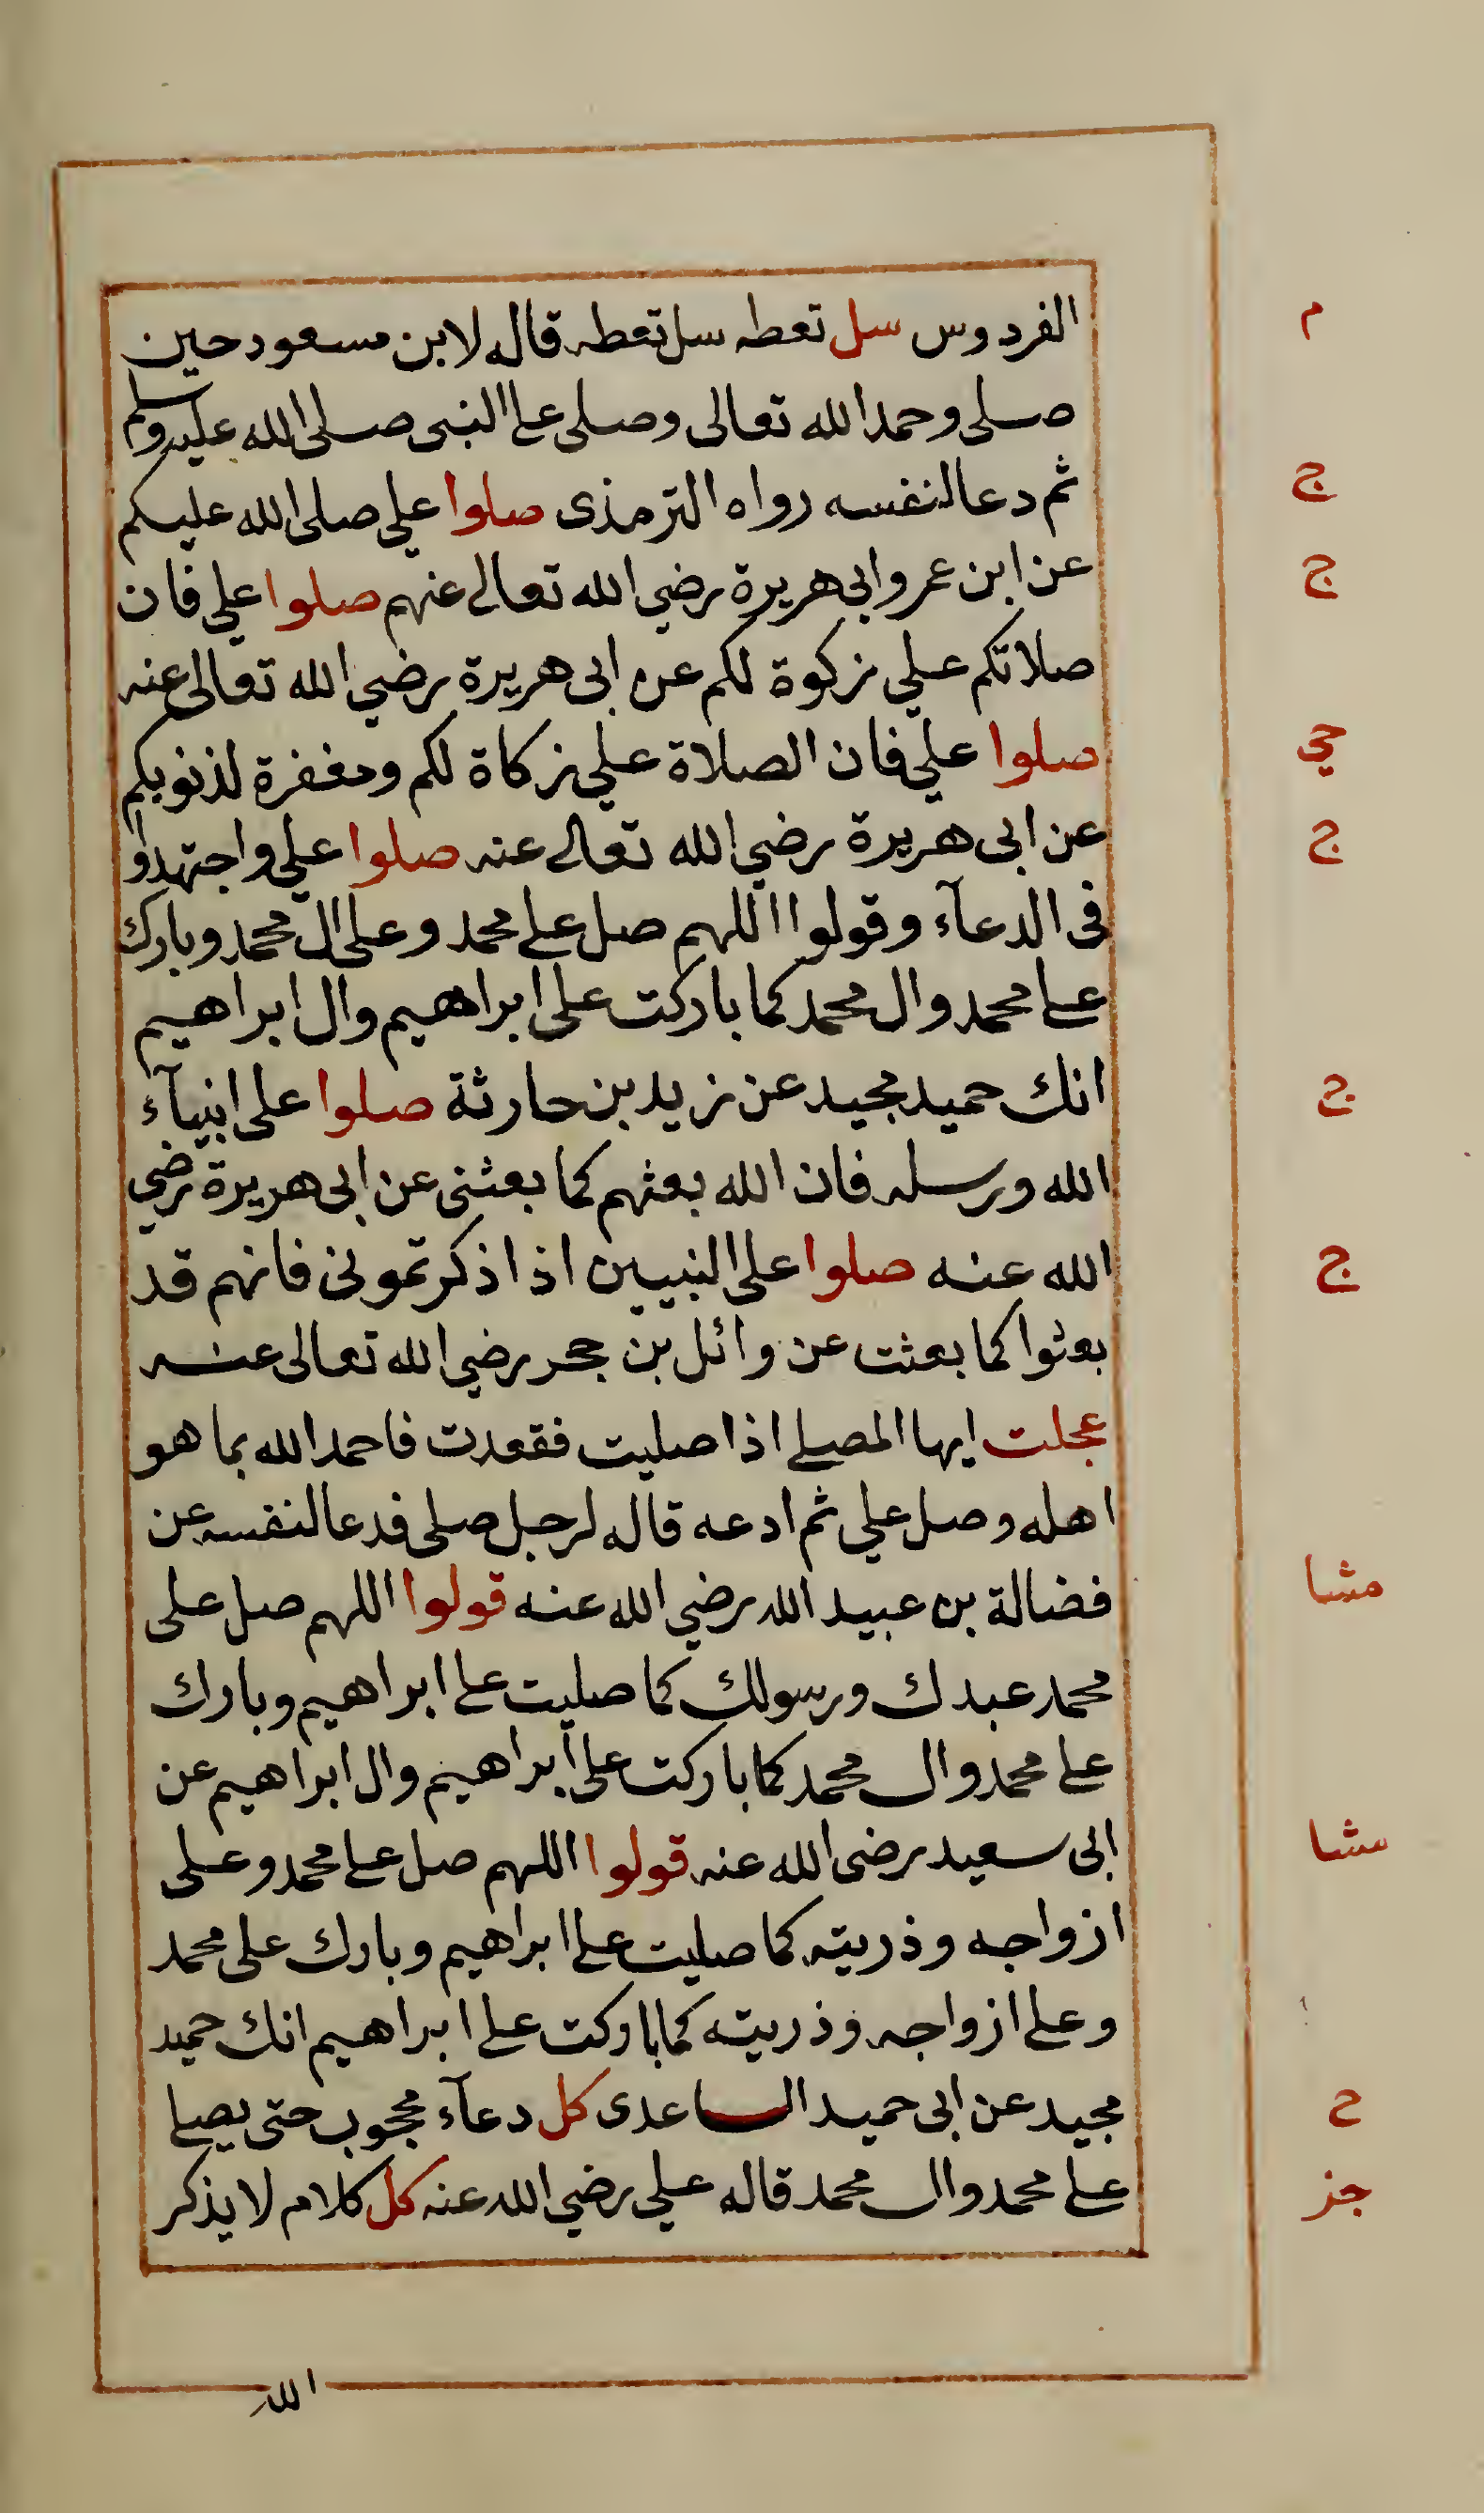 الفردوس سل تعطه سل تعطه قاله لابن مسعود حين
م
صلى وحمد الله تعالى وصلى على النبى صلى الله عليه وسلم
ثم دعا لنفسه رواه الترمذى صلوا علي صلى الله عليكم
ج
عن ابن عمر وابى هريرة رضي الله تعالى عنهم صلوا علي فان
ج
صلاتكم علي زكوة لكم عن ابى هريرة رضي الله تعالى عنه
صلوا علي فان الصلاة علي زكاة لكم ومغفرة لذنوبكم
عن ابى هريرة رضي الله تعالى عنه صلوا علي واجتهدوا
ج
فى الدعآء وقولوا اللهم صل على محمد وعلى ال محمد وبارك
على محمد وال محمد كما باركت على ابراهيم وال ابراهيم
انك حميد مجيد عن زيد بن حارثة صلوا على انبيآء
ج
الله ورسله فان الله بعثهم كما بعثنى عن ابى هريرة رضي
الله عنه صلوا على النبيين اذا ذكرتمونى فانهم قد
ج
بعثوا كما بعثت عن وائل بن حجر رضي الله تعالى عنه
عجلت ايها المصلى اذا صليت فقعدت فاحمد الله بما هو
اهله وصل علي ثم ادعه قاله لرجل صلى فدعا لنفسه عن
فضالة بن عبيد الله رضي الله عنه قولوا اللهم صل على
مشا
محمد عبدك ورسولك كما صليت على ابراهيم وبارك
على محمد وال محمد كما باركت على ابراهيم وال ابراهيم عن
ابى سعيد رضى الله عنه قولوا اللهم صل على محمد وعلى
مشا
ازواجه وذريته كما صليت على ابراهيم وبارك على محمد
وعلى ازواجه وذريته كما باركت على ابراهيم انك حميد
مجيد عن ابى حميد الساعدى كل دعآء محجوب حتى يصلى
ح
على محمد وال محمد قاله علي رضي الله عنه كل كلام لا يذكر
جز
الله